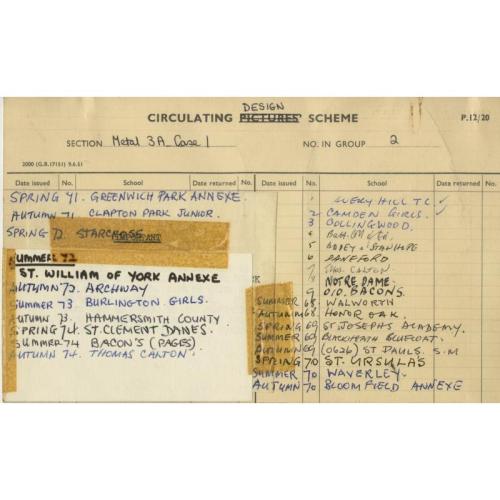 DESIGN
CIRCULATING PICTURES SCHEME P.12/20
SECTION Metal 3A Case 1 NO. IN GROUP 2
2000 (G.B.17151) 9.6.51
Date issued No. School Date returned No. Date issued No. School Date returned No.
SPRING 71. GREENWICH PARK ANNEXE.
AUTUMN 71. CLAPTON PARK JUNIOR.
SPRING 72. STARCROSS
SUMMER 72
ST. WILLIAM OF YORK ANNEXE
AUTUMN 72. ARCHWAY
SUMMER 73. BURLINGTON GIRLS.
AUTUMN 73. HAMMERSMITH COUNTY
SPRING 74. ST. CLEMENT DANES.
SUMMER 74 BACON'S (PAGES)
AUTUMN 74. THOMAS CALTON.
1 AVERY HILL T.C.
2 CAMDEN GIRLS.
3 COLLINGWOOD.
4
5 ADDEY & STANHOPE
6
7 THOS. CALTON
8 NOTRE DAME.
9 O/D. BACONS.
SUMMER 68. WALWORTH
AUTUMN 68. HONOR OAK.
SPRING 69 ST JOSEPHS ACADEMY.
SUMMER 69 BLACKHEATH BLUECOAT.
AUTUMN 69 (0626) ST PAULS. S.M
SPRING 70 ST. URSULAS
SUMMER 70 WAVERLEY.
AUTUMN 70 BLOOMFIELD ANNEXE